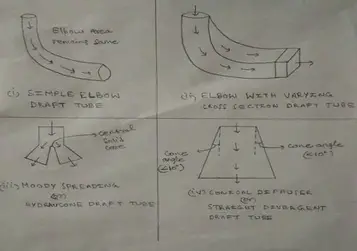 Elbow area
remains same
(i) SIMPLE ELBOW
DRAFT TUBE
(ii) ELBOW WITH VARYING
CROSS SECTION DRAFT TUBE
central
solid
core
(iii) MOODY SPREADING
(or)
HYDRACONE DRAFT TUBE
cone
angle
(<10°)
cone angle
(<10°)
(iv) CONICAL DIFFUSER
(or)
STRAIGHT DIVERGENT
DRAFT TUBE